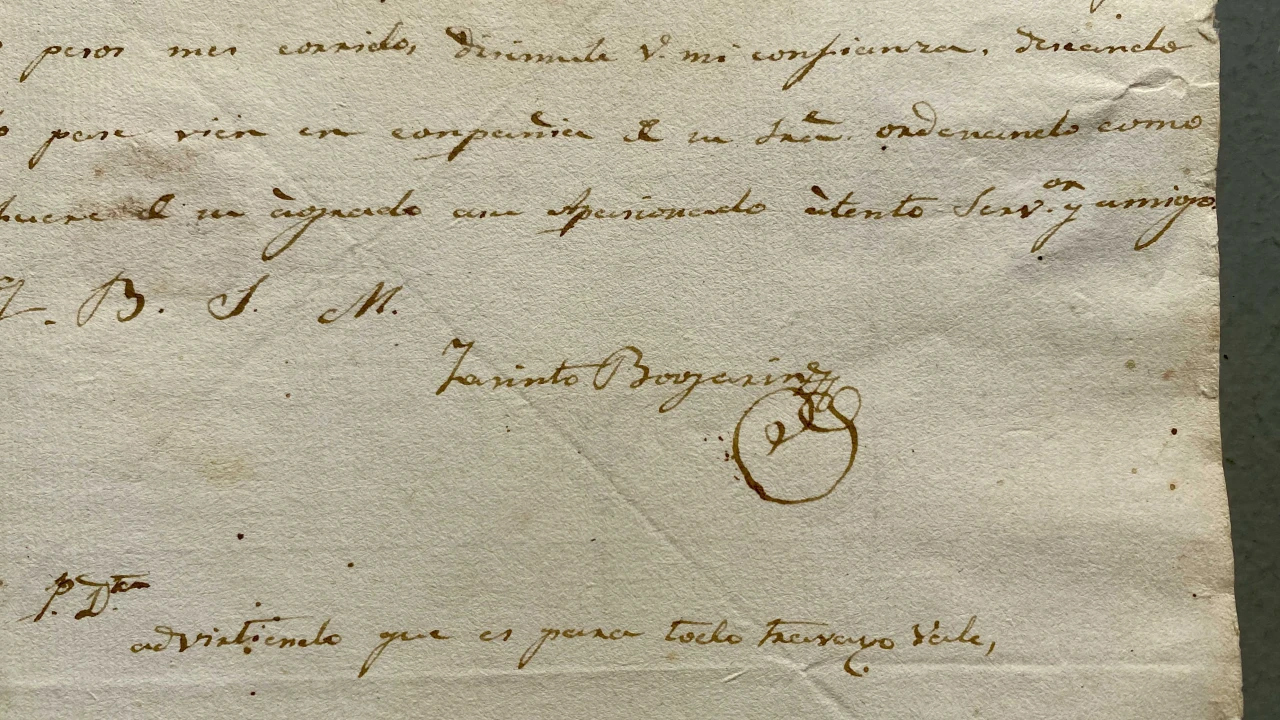 pesos mes corrido, disimule V. mi confianza, deseando
pase vien en conpañia de su Sra. ordenando como
fuere de su àgrado asu Apasionado àtento Serv.or y amigo
Q. B. S. M.
Jasinto Boojarinez
P. Dta
advirtiendo que es para todo travayo Vale,